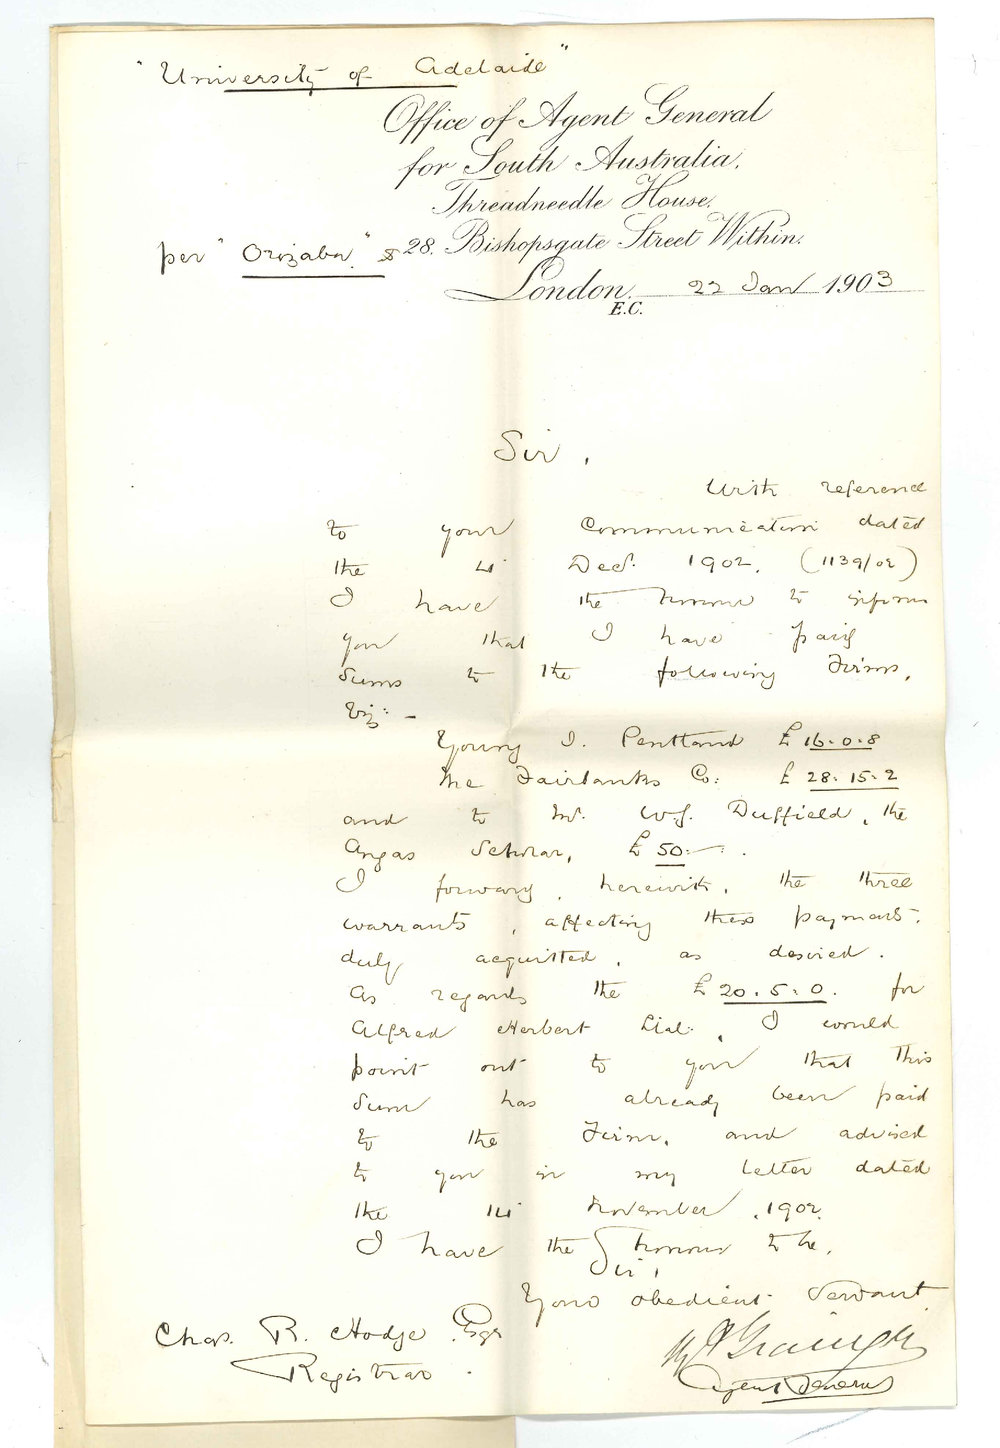 "University of Adelaide"
Office of Agent General
for South Australia.
Threadneedle House.
per "Orizaba."
28. Bishopsgate Street Within.
London, 22 Jan 1903
E.C.
Sir,
With reference
to your communication dated
the 4th Decr. 1902, (1139/02)
I have the honour to inform
you that I have paid
sums to the following Firms,
viz: -
Young J. Pentland £16.0.8
The Fairbanks Co: £28.15.2
and to Mr. W.G. Duffield, the
Angas Scholar, £50:-:-.
I forward, herewith, the three
warrants, affecting these payments,
duly acquitted, as desired.
As regards the £20.5.0. for
Alfred Herbert Ltd., I would
point out to you that this
sum has already been paid
to the Firm, and advised
to you in my letter dated
the 14th November, 1902.
I have the honour to be,
Sir,
Your obedient Servant
Chas. R. Hodge Esqr
Registrar.
Grainger
Agent General